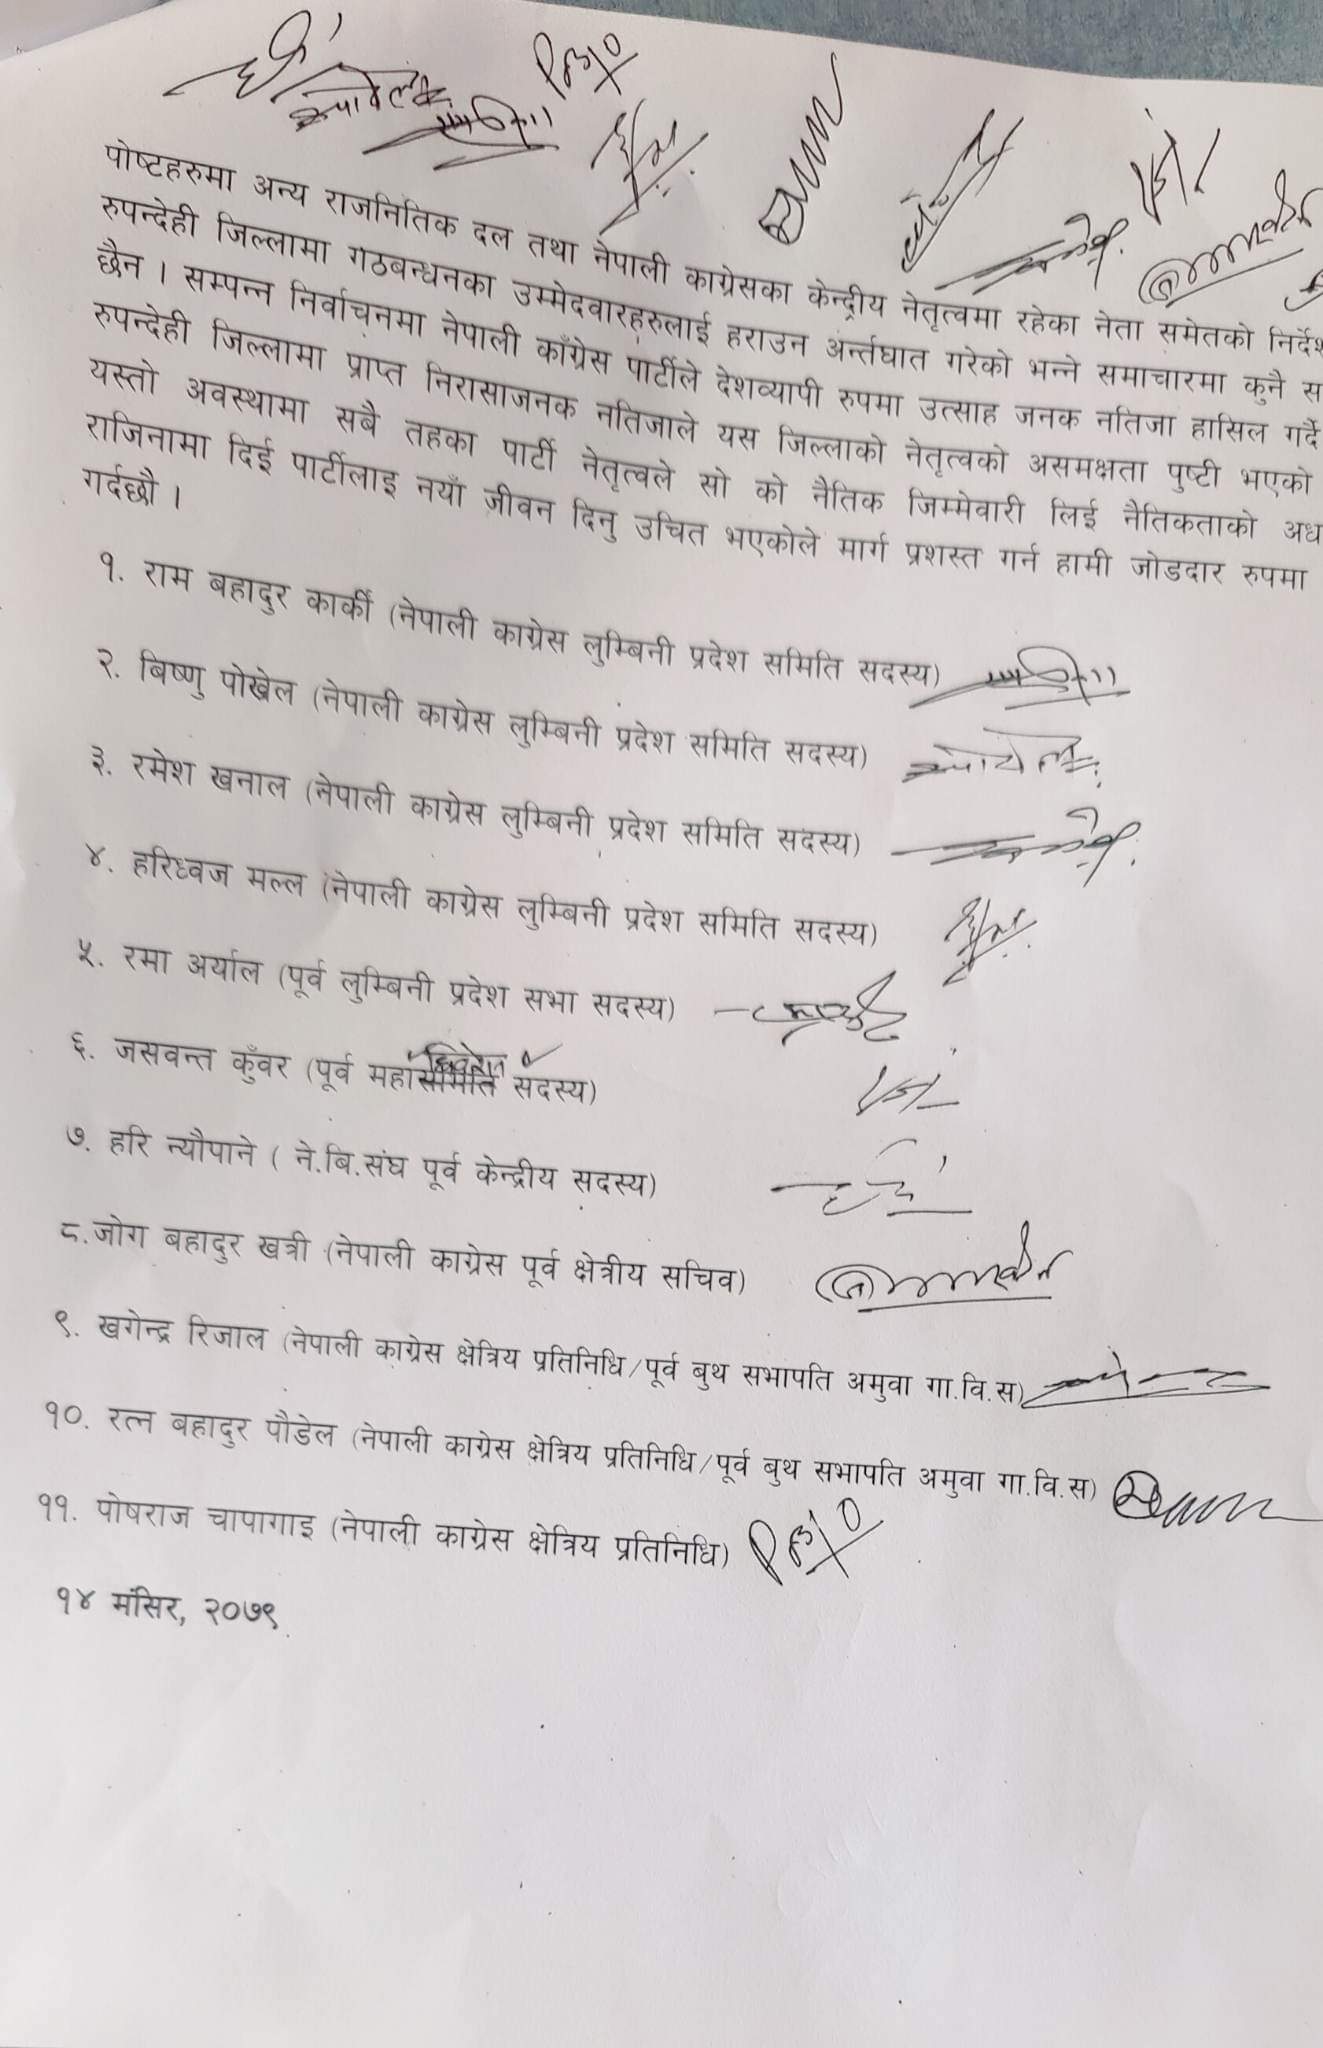 पोष्टहरुमा अन्य राजनितिक दल तथा नेपाली काग्रेसका केन्द्रीय नेतृत्वमा रहेका नेता समेतको निर्देश
रुपन्देही जिल्लामा गठबन्धनका उम्मेदवारहरुलाई हराउन अर्न्तघात गरेको भन्ने समाचारमा कुनै स
छैन । सम्पन्न निर्वाचनमा नेपाली काँग्रेस पार्टीले देशव्यापी रुपमा उत्साह जनक नतिजा हासिल गर्दै
रुपन्देही जिल्लामा प्राप्त निरासाजनक नतिजाले यस जिल्लाको नेतृत्वको असमक्षता पुष्टी भएको
यस्तो अवस्थामा सबै तहका पार्टी नेतृत्वले सो को नैतिक जिम्मेवारी लिई नैतिकताको अध
राजिनामा दिई पार्टीलाइ नयाँ जीवन दिनु उचित भएकोले मार्ग प्रशस्त गर्न हामी जोडदार रुपमा
गर्दछौ ।
१. राम बहादुर कार्की (नेपाली काग्रेस लुम्बिनी प्रदेश समिति सदस्य)
२. बिष्णु पोखेल (नेपाली काग्रेस लुम्बिनी प्रदेश समिति सदस्य)
३. रमेश खनाल (नेपाली काग्रेस लुम्बिनी प्रदेश समिति सदस्य)
४. हरिध्वज मल्ल (नेपाली काग्रेस लुम्बिनी प्रदेश समिति सदस्य)
५. रमा अर्याल (पूर्व लुम्बिनी प्रदेश सभा सदस्य)
६. जसवन्त कुँवर (पूर्व महासमिति सदस्य)
७. हरि न्यौपाने ( ने.बि.संघ पूर्व केन्द्रीय सदस्य)
८.जोग बहादुर खत्री (नेपाली काग्रेस पूर्व क्षेत्रीय सचिव)
९. खगेन्द्र रिजाल (नेपाली काग्रेस क्षेत्रिय प्रतिनिधि/पूर्व बुथ सभापति अमुवा गा.वि.स)
१०. रत्न बहादुर पौडेल (नेपाली काग्रेस क्षेत्रिय प्रतिनिधि/पूर्व बुथ सभापति अमुवा गा.वि.स)
११. पोषराज चापागाइ (नेपाली काग्रेस क्षेत्रिय प्रतिनिधि)
१४ मंसिर, २०७९